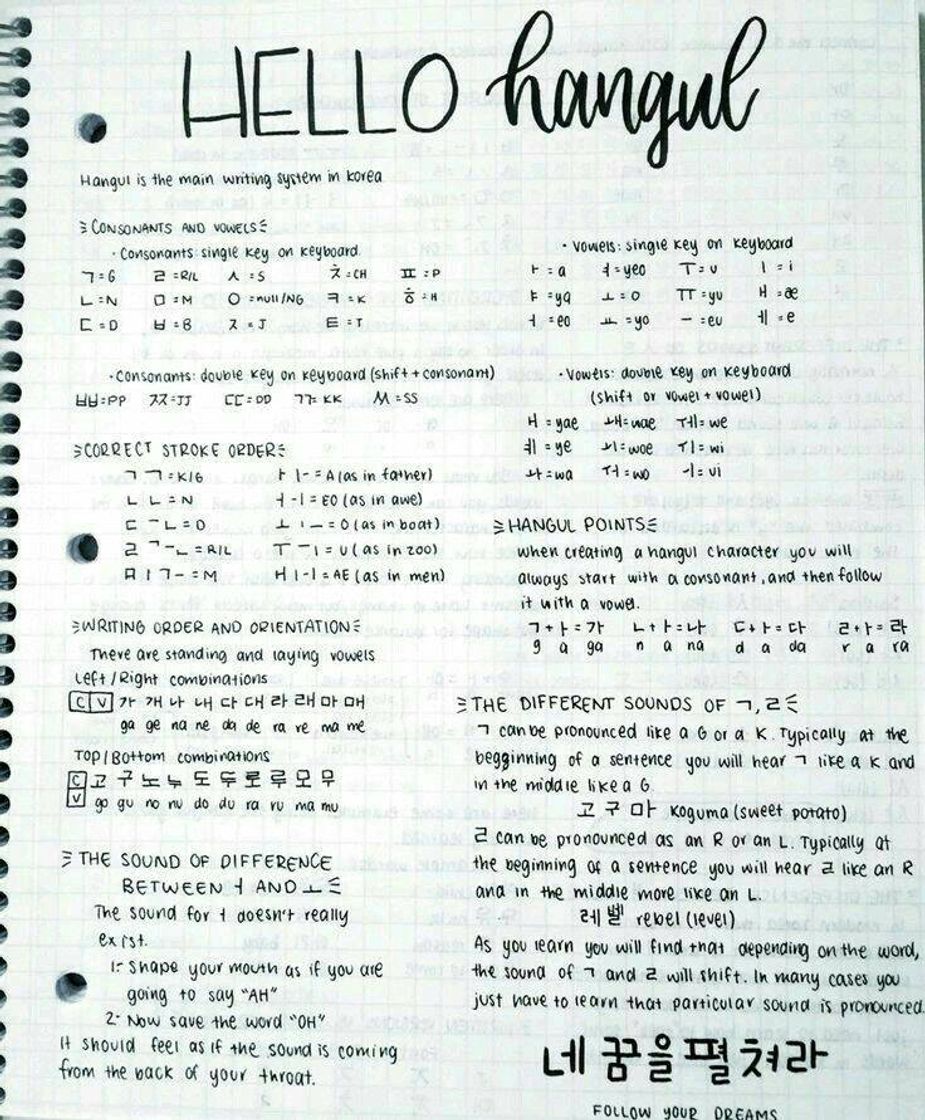 HELLO hangul
Hangul is the main writing system in Korea
CONSONANTS AND VOWELS
· Consonants: single key on keyboard.
ㄱ=G ㄹ=R/L ㅅ=S ㅊ=CH ㅍ=P
ㄴ=N ㅁ=M ㅇ=null/NG ㅋ=K ㅎ=H
ㄷ=D ㅂ=B ㅈ=J ㅌ=T
· Consonants: double key on keyboard (shift + consonant)
ㅃ=PP ㅉ=JJ ㄸ=DD ㄲ=KK ㅆ=SS
CORRECT STROKE ORDER
ㄱ ㄱ=K/G ㅏ ㅣ-=A (as in father)
ㄴ ㄴ=N ㅓ-ㅣ=EO (as in awe)
ㄷ ㅡㄴ=D ㅗ ㅣㅡ=O (as in boat)
ㄹ ㄱ-ㄴ=R/L ㅜ ㅡㅣ=U (as in zoo)
ㅁ ㅣㄱ-=M ㅐㅣ-ㅣ=AE (as in men)
WRITING ORDER AND ORIENTATION
There are standing and laying vowels
Left/Right combinations
C V 가 개 나 내 다 대 라 래 마 매
ga ge na ne da de ra re ma me
Top/Bottom combinations
C 고 구 노 누 도 두 로 루 모 무
V go gu no nu do du ra ru ma mu
THE SOUND OF DIFFERENCE
BETWEEN ㅓ AND ㅗ
The sound for ㅓ doesn't really
exist.
1- Shape your mouth as if you are
going to say "AH"
2- Now save the word "OH"
It should feel as if the sound is coming
from the back of your throat.
· Vowels: single key on keyboard
ㅏ=a ㅕ=yeo ㅜ=u ㅣ=i
ㅑ=ya ㅗ=o ㅠ=yu ㅐ=æ
ㅓ=eo ㅛ=yo ㅡ=eu ㅔ=e
· Vowels: double key on keyboard
(shift or vowel + vowel)
ㅒ=yae ㅙ=wae ㅞ=we
ㅖ=ye ㅚ=woe ㅟ=wi
ㅘ=wa ㅝ=wo ㅢ=ui
HANGUL POINTS
when creating a hangul character you will
always start with a consonant, and then follow
it with a vowel.
ㄱ+ㅏ=가 ㄴ+ㅏ=나 ㄷ+ㅏ=다 ㄹ+ㅏ=라
g a ga n a na d a da r a ra
THE DIFFERENT SOUNDS OF ㄱ, ㄹ
ㄱ can be pronounced like a G or a K. Typically at the
beggining of a sentence you will hear ㄱ like a K and
in the middle like a G.
고구마 Koguma (sweet potato)
ㄹ can be pronounced as an R or an L. Typically at
the beginning of a sentence you will hear ㄹ like an R
and in the middle more like an L.
레벨 rebel (level)
As you learn you will find that depending on the word,
the sound of ㄱ and ㄹ will shift. In many cases you
just have to learn that particular sound is pronounced.
네 꿈을 펼쳐라
FOLLOW YOUR DREAMS